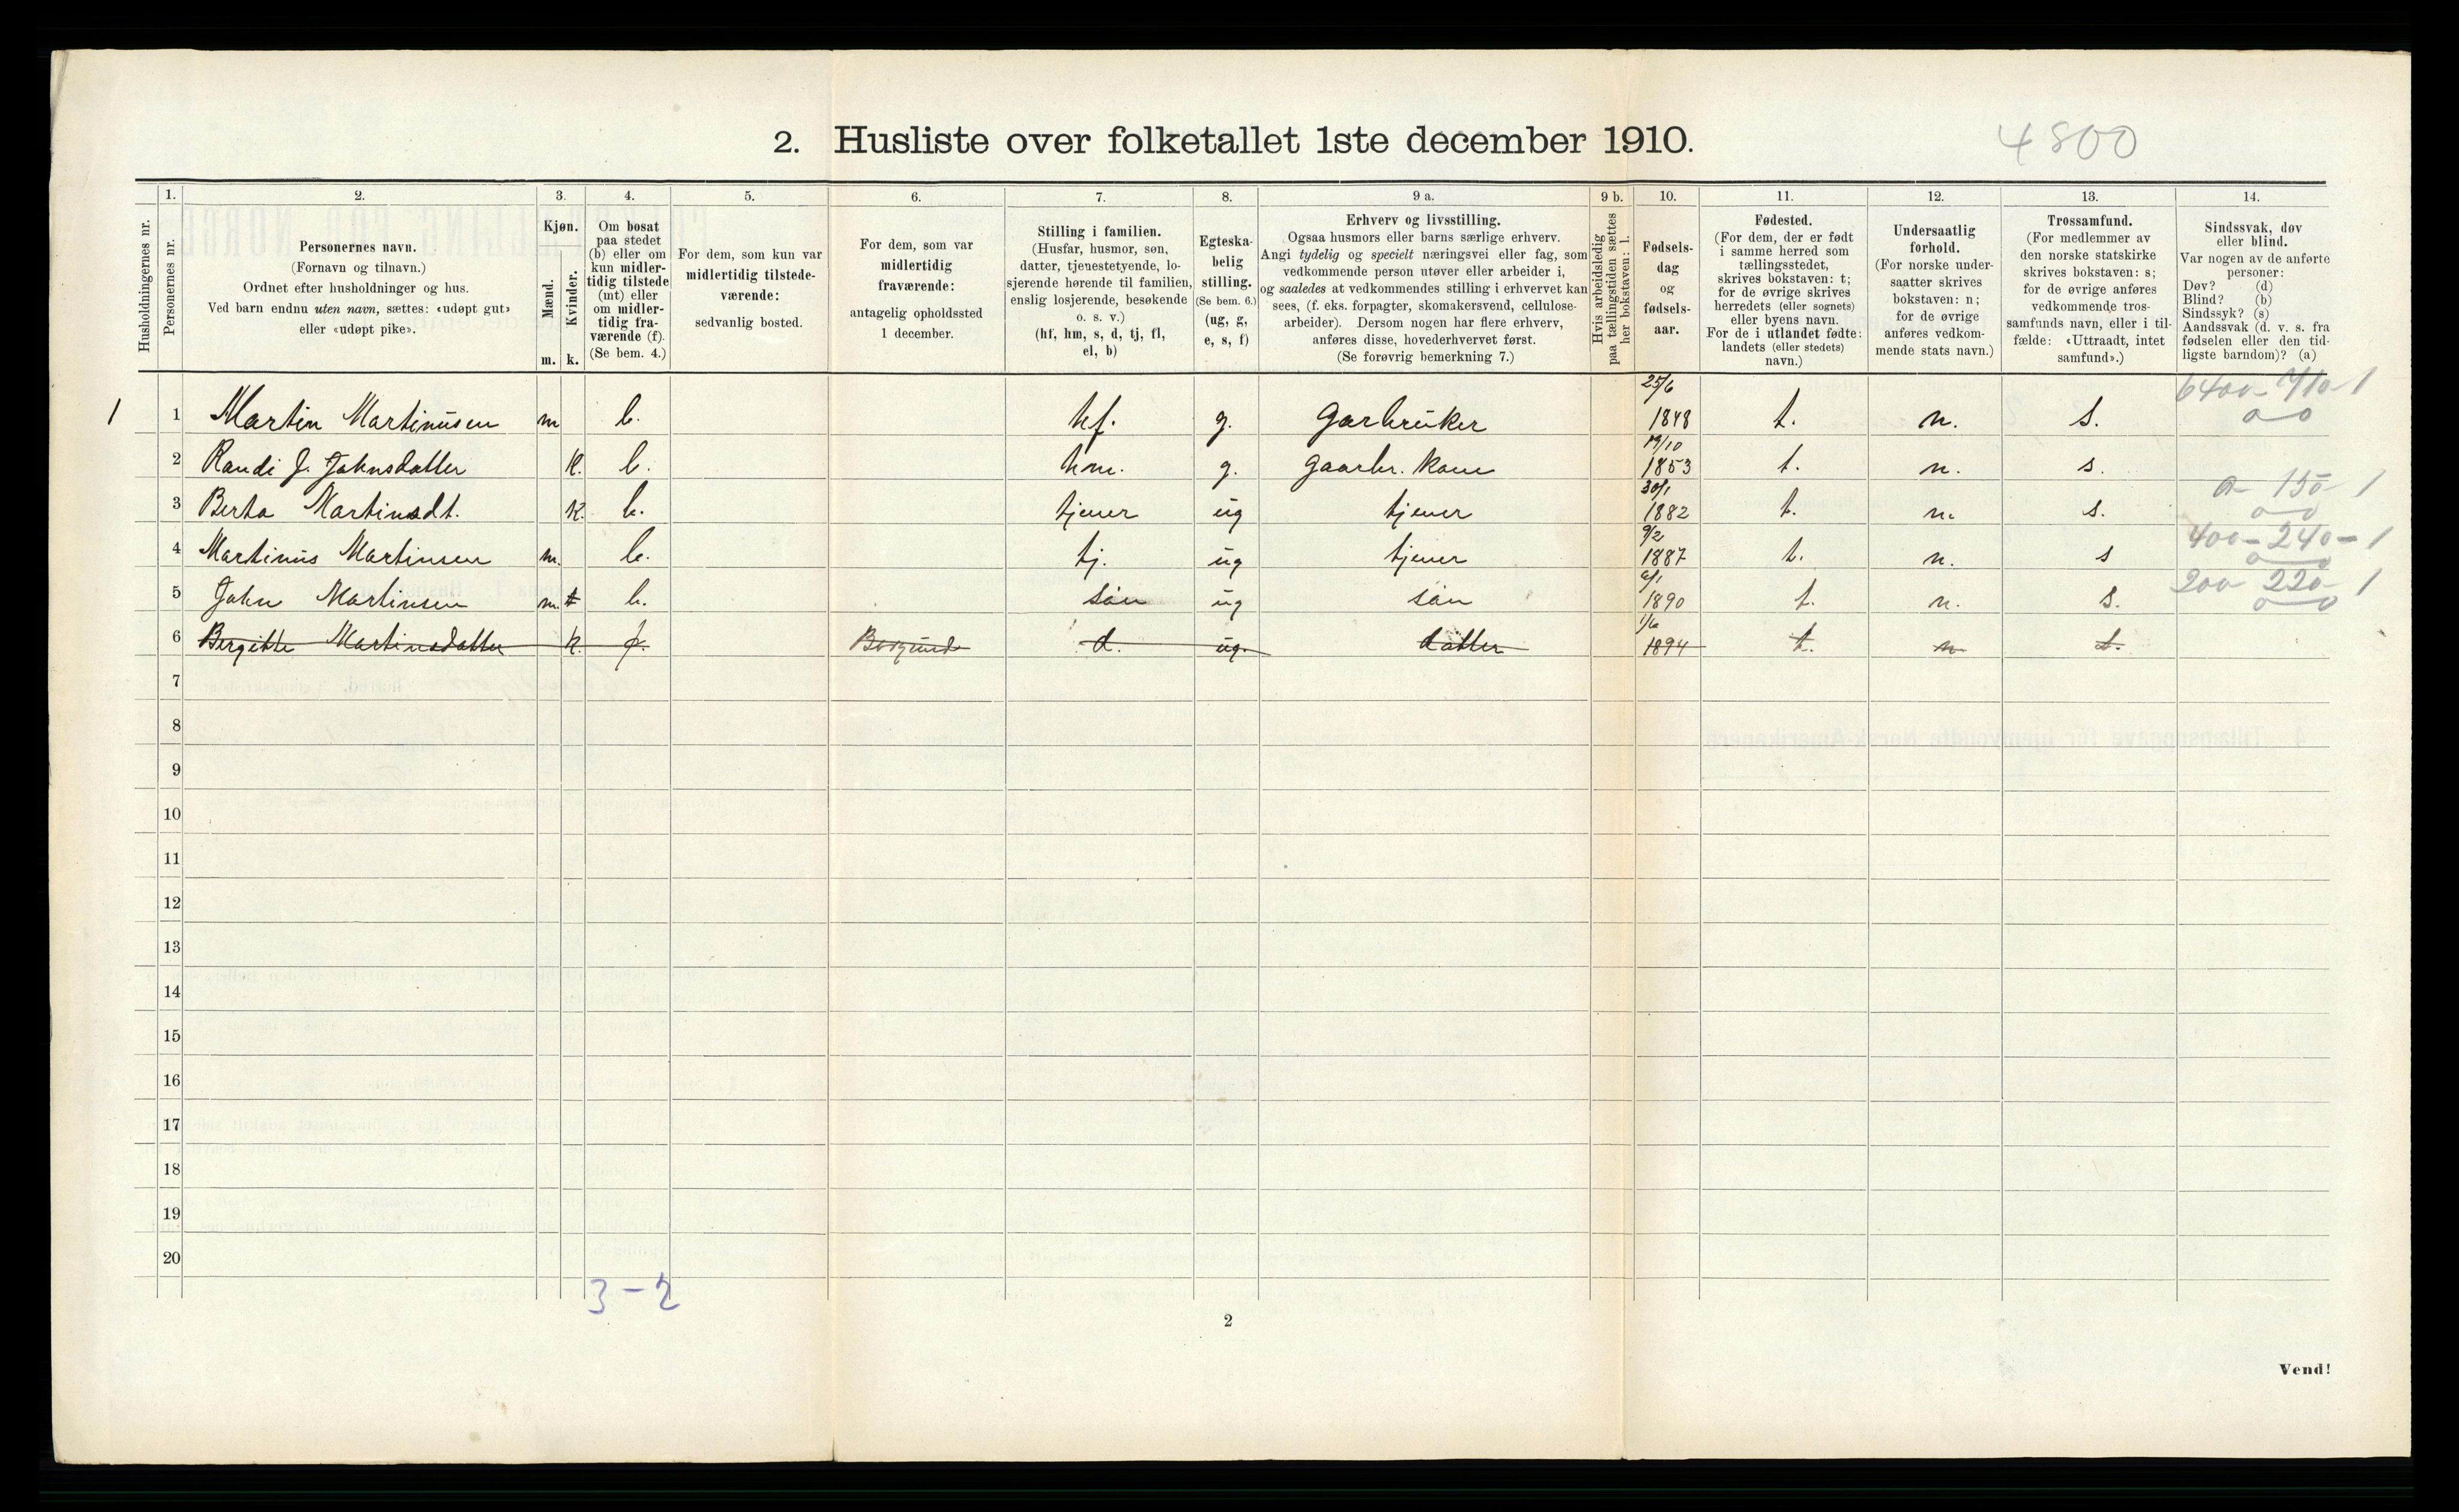 2. Husliste over folketallet 1ste december 1910.
4800
Husholdningernes nr.
1.
Personernes nr.
2.
Personernes navn.
(Fornavn og tilnavn.)
Ordnet efter husholdninger og hus.
Ved barn endnu uten navn, sættes: «udøpt gut»
eller «udøpt pike».
3.
Kjøn.
Mænd.
Kvinder.
m. k.
4.
Om bosat
paa stedet
(b) eller om
kun midler-
tidig tilstede
(mt) eller
om midler-
tidig fra-
værende (f).
(Se bem. 4.)
5.
For dem, som kun var
midlertidig tilstede-
værende:
sedvanlig bosted.
6.
For dem, som var
midlertidig
fraværende:
antagelig opholdssted
1 december.
7.
Stilling i familien.
(Husfar, husmor, søn,
datter, tjenestetyende, lo-
sjerende hørende til familien,
enslig losjerende, besøkende
o. s. v.)
(hf, hm, s, d, tj, fl,
el, b)
8.
Egteska-
belig
stilling.
(Se bem. 6.)
(ug, g,
e, s, f)
9 a.
Erhverv og livsstilling.
Ogsaa husmors eller barns særlige erhverv.
Angi tydelig og specielt næringsvei eller fag, som
vedkommende person utøver eller arbeider i,
og saaledes at vedkommendes stilling i erhvervet kan
sees, (f. eks. forpagter, skomakersvend, cellulose-
arbeider). Dersom nogen har flere erhverv,
anføres disse, hovederhvervet først.
(Se forøvrig bemerkning 7.)
9 b.
Hvis arbeidsledig
paa tællingstiden sættes
her bokstaven: l.
10.
Fødsels-
dag
og
fødsels-
aar.
11.
Fødested.
(For dem, der er født
i samme herred som
tællingsstedet,
skrives bokstaven: t;
for de øvrige skrives
herredets (eller sognets)
eller byens navn.
For de i utlandet fødte:
landets (eller stedets)
navn.)
12.
Undersaatlig
forhold.
(For norske under-
saatter skrives
bokstaven: n;
for de øvrige
anføres vedkom-
mende stats navn.)
13.
Trossamfund.
(For medlemmer av
den norske statskirke
skrives bokstaven: s;
for de øvrige anføres
vedkommende tros-
samfunds navn, eller i til-
fælde: «Uttraadt, intet
samfund».)
14.
Sindssvak, døv
eller blind.
Var nogen av de anførte
personer:
Døv? (d)
Blind? (b)
Sindssyk? (s)
Aandssvak (d. v. s. fra
fødselen eller den tid-
ligste barndom)? (a)
1 1 Martin Martinusen m b. hf. g. Garbruker 25/6 1848 t. n. s.
2 Randi J. Johnsdatter k. b. hm. g. gaarbr. kone 19/10 1853 t. n. s.
3 Berta Martinsdt. k. b. tjener ug tjener 30/1 1882 t. n. s. 150 1
4 Martinus Martinsen m. b. tj. ug tjener 9/2 1887 t. n. s 400 - 240 - 1
5 John Martinsen m. b. søn ug søn 6/1 1890 t. n. s. 200 220 1
6 Bergitte Martinsdatter k. f. Borgund d. ug. datter 1/6 1894 t. n s.
7
8
9
10
11
12
13
14
15
16
17
18
19
20
3 - 2
2
Vend!